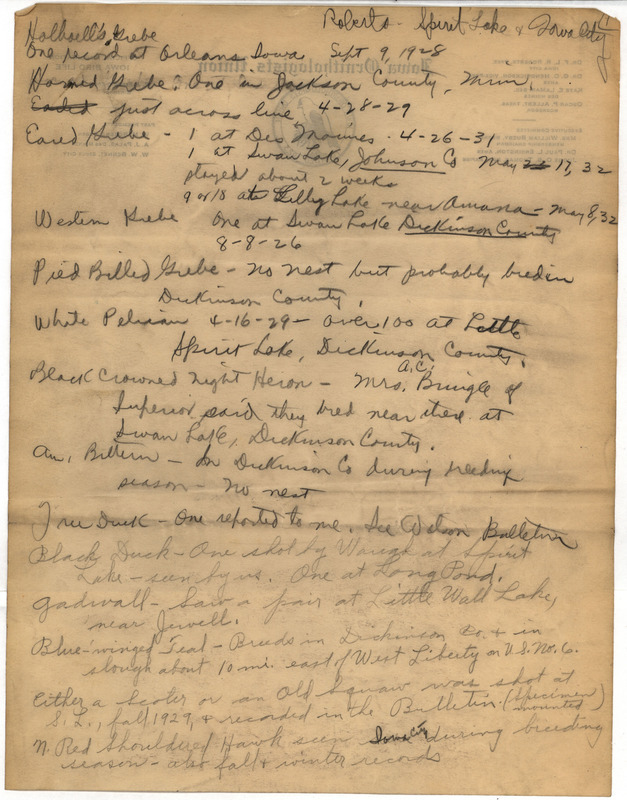 Roberts - Spirit Lake & Iowa City
Holboell's Grebe
One record at Orleans, Iowa Sept 9, 1928
Horned Grebe. One in Jackson County, Minn.
Eared just across line 4-28-29
Eared Grebe - 1 at Des Moines. 4-26-31
1 at Swan Lake, Johnson Co May 17, 32
stayed about 2 weeks
9 or 10 at Lilly Lake near Amana - May 8, 32
Western Grebe One at Swan Lake Dickinson County
8-8-26
Pied Billed Grebe - no nest but probably bred in
Dickinson County.
White Pelican 4-16-29 - over 100 at Little
Spirit Lake, Dickinson County.
Black Crowned Night Heron - Mrs. A.C. Bringle of
Superior said they bred near there at
Swan Lake, Dickinson County.
Am. Bittern - In Dickinson Co during breeding
season - no nest
Tree Duck - One reported to me. See Wilson Bulletin
Black Duck - One shot by Waugh at Spirit
Lake - seen by us. One at Long Pond.
Gadwall - Saw a pair at Little Wall Lake,
near Jewell.
Blue-winged Teal - Breeds in Dickinson Co. & in
slough about 10 mi. east of West Liberty on U.S. No. 6.
Either a Scoter or an Old Squaw was shot at
S.L., fall, 1929, & recorded in the Bulletin. (Specimen mounted)
N. Red Shouldered Hawk seen Iowa City during breeding
season - also fall & winter records